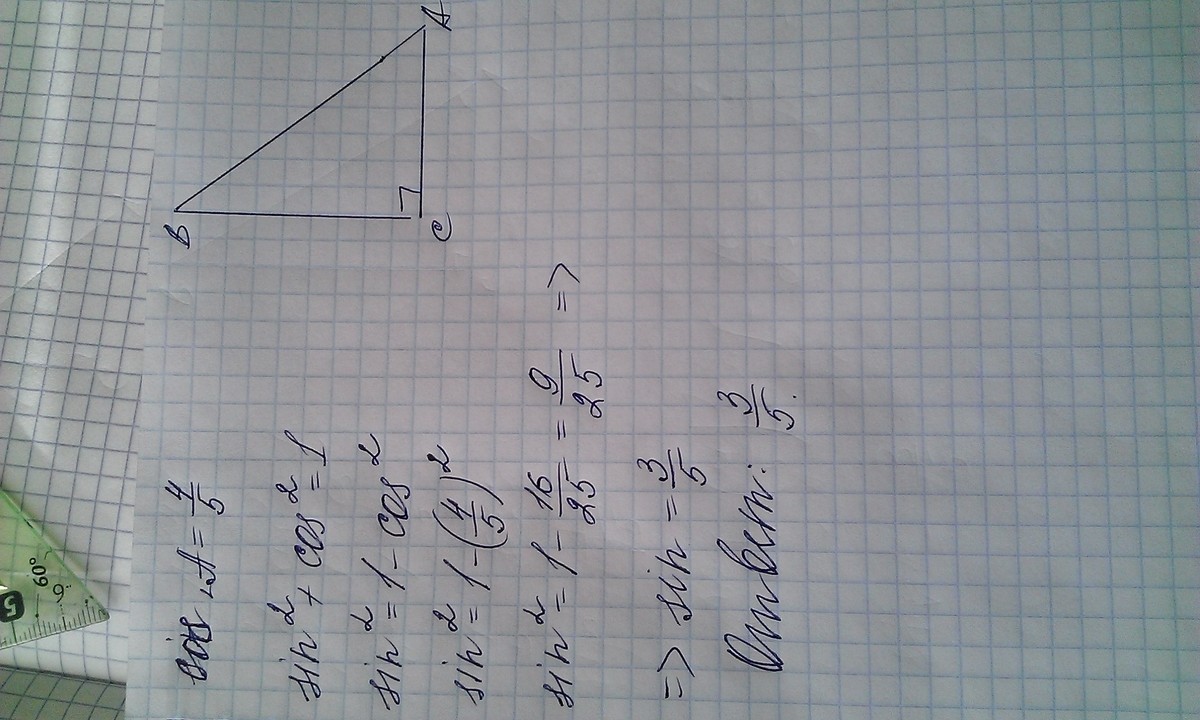 cos ∠A = 4/5
sin² + cos² = 1
sin² = 1 - cos²
sin² = 1 - (4/5)²
sin² = 1 - 16/25 = 9/25 =>
=> sin = 3/5
Ответ: 3/5.
B
A
C
5
60°
6